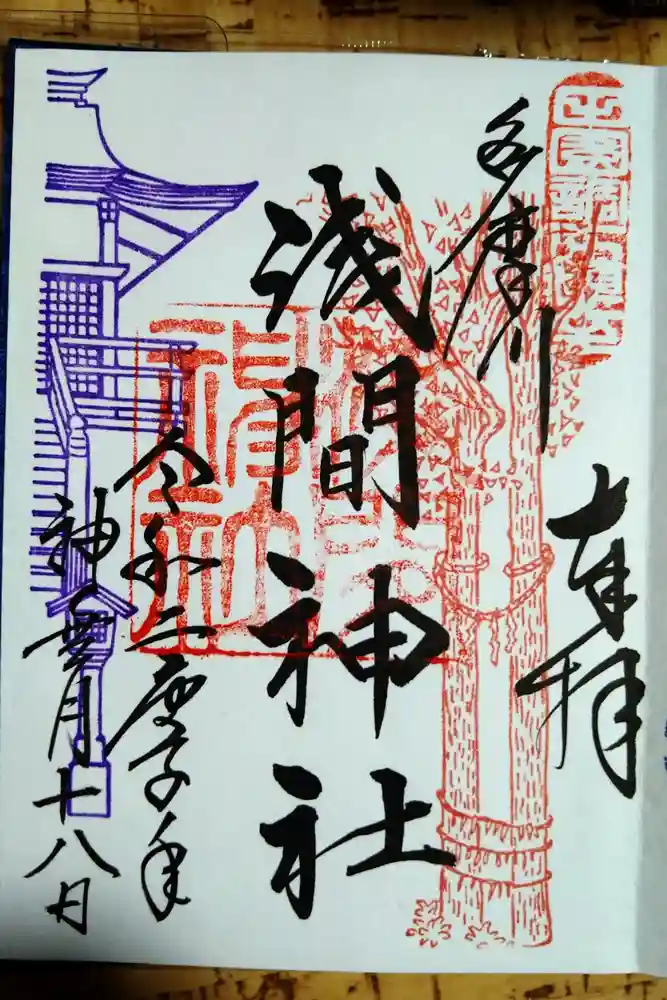 奉拝
多摩川
浅間神社
令和二庚子年
神無月十八日